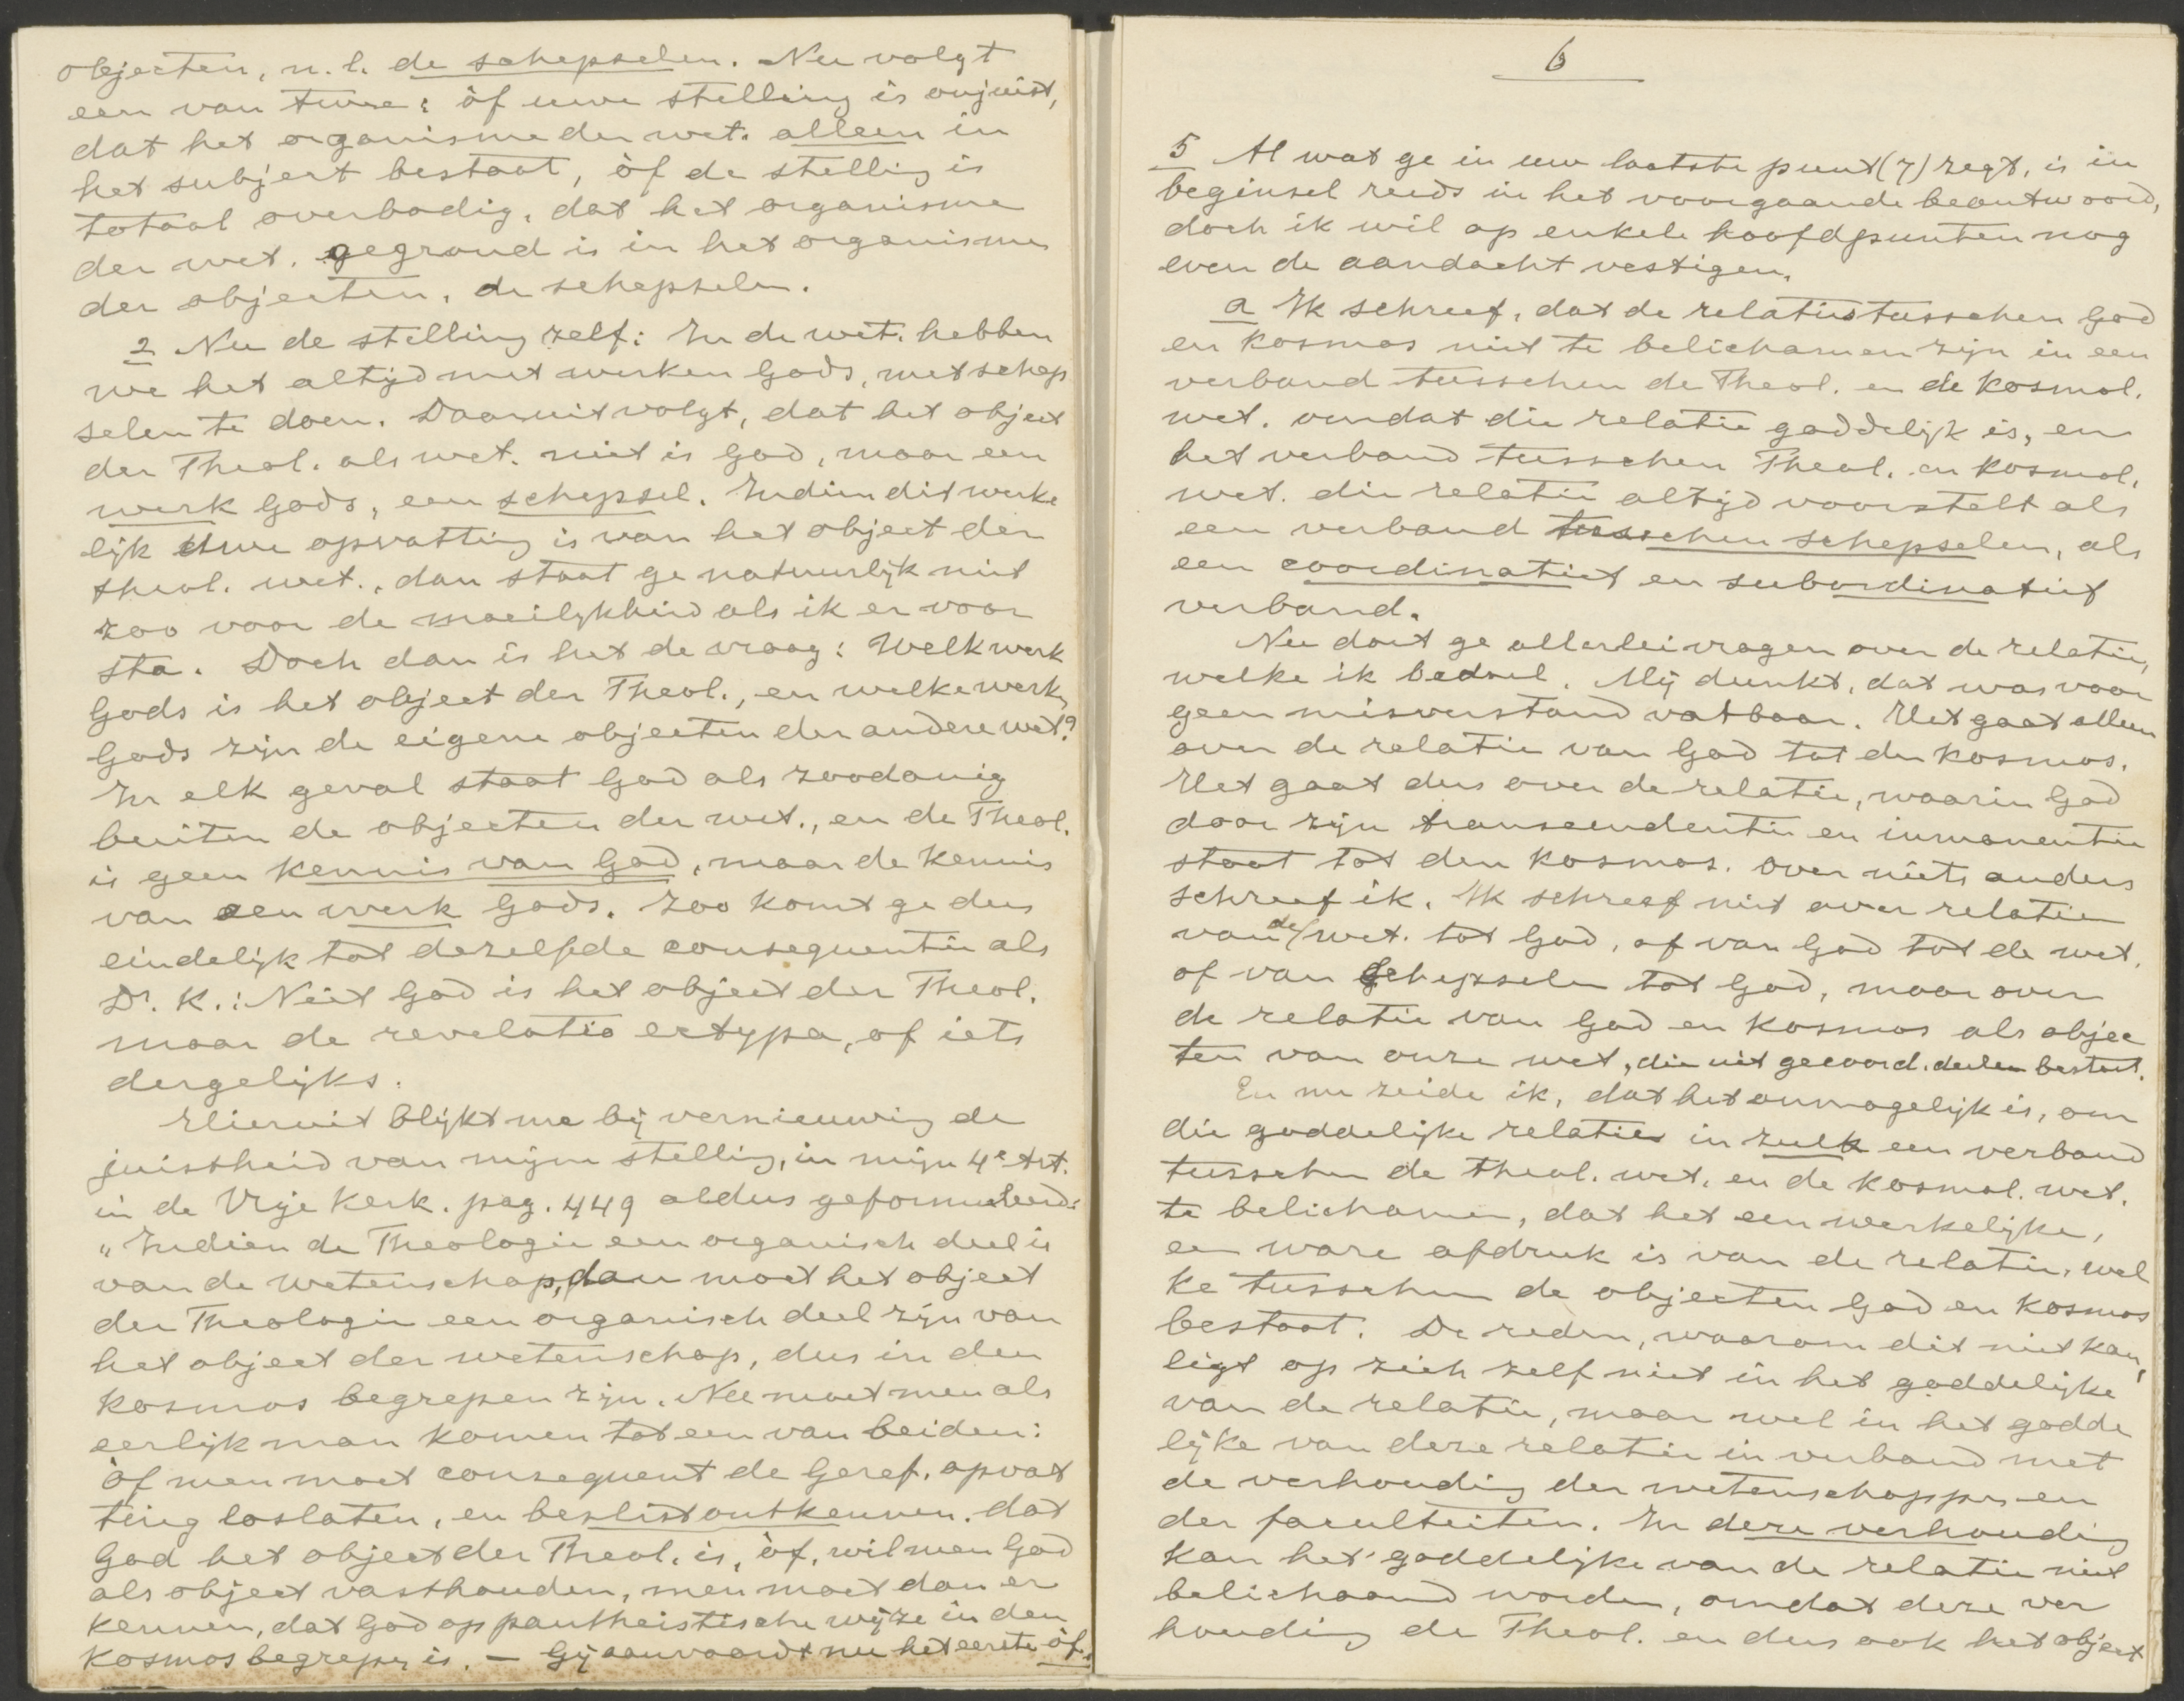 objecten, n.l. de schepselen. Nu volgt
een van twee: òf uwe stelling is onjuist,
dat het organisme der wet. alleen in
het subject bestaat, òf de stelling is
totaal overbodig, dat het organisme
der wet. gegrond is in het organisme
der objecten, de schepselen.
2 Nu de stelling zelf: In de wet. hebben
we het altijd met werken Gods, met schep
selen te doen. Daaruit volgt, dat het object
der Theol. als wet. niet is God, maar een
werk Gods, een schepsel. Indien dit werke
lijk Uwe opvatting is van het object der
theol. wet., dan staat ge natuurlijk niet
zoo voor de moeilijkheid als ik er voor
sta. Doch dan is het de vraag: Welk werk
Gods is het object der Theol., en welke werken
Gods zijn de eigene objecten der andere wet.?
In elk geval staat God als zoodanig
buiten de objecten der wet., en de Theol.
is geen kennis van God, maar de kennis
van een werk Gods. Zoo komt ge dus
eindelijk tot dezelfde consequentie als
Dr. K.: Niet God is het object der Theol.
maar de revelatio ectypa, of iets
dergelijks.
Hieruit blijkt me bij vernieuwing de
juistheid van mijn stelling, in mijn 4e Art.
in de Vrije Kerk. pag. 449 aldus geformuleerd:
"Indien de Theologie een organisch deel is
van de wetenschap, dan moet het object
der Theologie een organisch deel zijn van
het object der wetenschap, dus in den
Kosmos begrepen zijn. Nu moet men als
eerlijk man komen tot een van beiden:
òf men moet consequent de Geref. opvat
ting loslaten, en beslist ontkennen, dat
God het object der Theol. is, òf, wil men God
als object vasthouden, men moet dan er
kennen, dat God op pantheistische wijze in den
Kosmos begrepen is. — Gij aanvaardt nu het eerste òf.
6
5 Al wat ge in uw laatste punt (7) zegt, is in
beginsel reeds in het voorgaande beantwoord,
doch ik wil op enkele hoofdpunten nog
even de aandacht vestigen.
a Ik schreef, dat de relaties tusschen God
en Kosmos niet te belichamen zijn in een
verband tusschen de Theol. en de Kosmol.
wet. omdat die relatie goddelijk is, en
het verband tusschen Theol. en Kosmol.
wet. die relatie altijd voorstelt als
een verband tusschen schepselen, als
een coordinatief en subordinatief
verband.
Nu doet ge allerlei vragen over de relatie,
welke ik bedoel. Mij dunkt, dat was voor
geen misverstand vatbaar. Het gaat alleen
over de relatie van God tot den Kosmos.
Het gaat dus over de relatie, waarin God
door zijn transcendentie en immanentie
staat tot den Kosmos. Over niets anders
schreef ik. Ik schreef niet over relatien
van de wet. tot God, of van God tot de wet,
of van schepselen tot God, maar over
de relatie van God en Kosmos als objec
ten van onze wet, die uit gecoord. deelen bestaat.
En nu zeide ik, dat het onmogelijk is, om
die goddelijke relaties in zulk een verband
tusschen de theol. wet. en de Kosmol. wet.
te belichamen, dat het een werkelijke,
een ware afdruk is van de relatie, wel
ke tusschen de objecten God en Kosmos
bestaat. De reden, waarom dit niet kan,
ligt op zich zelf niet in het goddelijke
van de relatie, maar wel in het godde
lijke van deze relatie in verband met
de verhouding der wetenschappen en
der faculteiten. In deze verhouding
kan het goddelijke van de relatie niet
belichaamd worden, omdat deze ver
houding de Theol. en dus ook het object